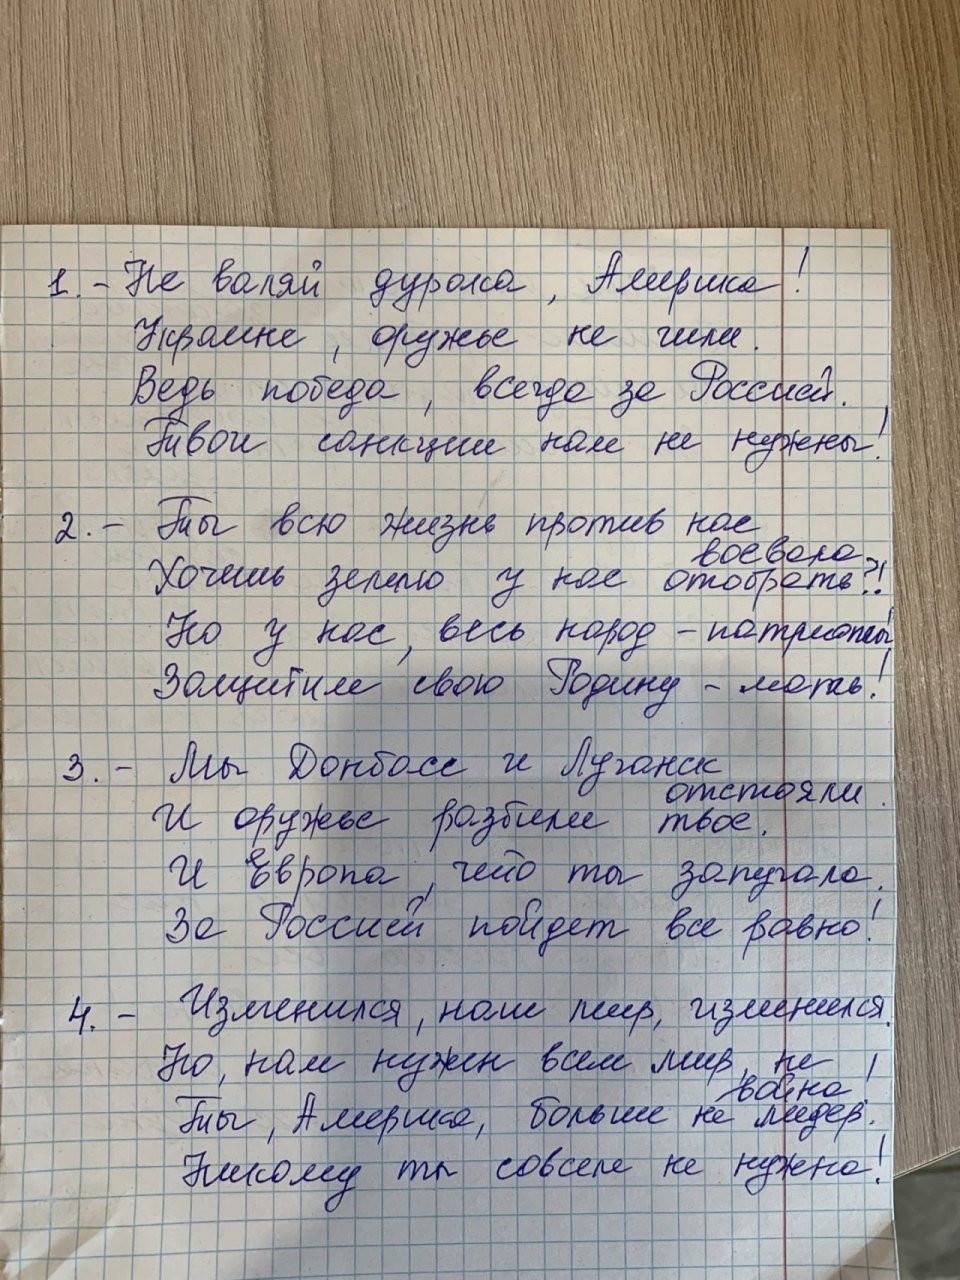 1. - Не валяй дурака, Америка!
Украине, оружье не шли.
Ведь победа, всегда за Россией.
Твои санкции нам не нужны!
2. - Ты всю жизнь против нас
воевала
Хочешь землю у нас отобрать?!
Но у нас, весь народ - патриоты!
Защитим свою Родину - мать!
3. - Мы Донбасс и Луганск
отстояли.
И оружье разбили твое.
И Европа, что ты запугала.
За Россией пойдет все равно!
4. - Изменился, наш мир, изменился.
Но, нам нужен всем мир, не
война!
Ты, Америка, больше не лидер.
Никому ты совсем не нужна!